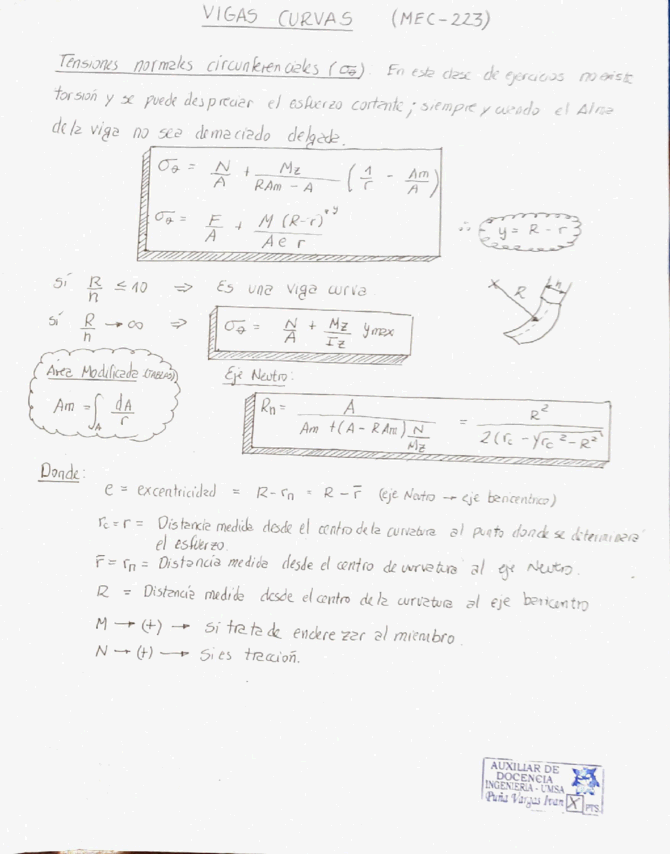 VIGAS CURVAS (MEC-223)
Tensiones normales circunferenciales (σθ). En esta clase de ejercicios no existe
torsión y se puede despreciar el esfuerzo cortante; siempre y cuando el Alma
de la viga no sea demaciado delgada.
σθ = N/A + Mz/(RAm - A) (1/r - Am/A)
σθ = F/A + M (R-r)/(A e r) y
∴ y = R - r
Sí R/n ≤ 10 ⇒ Es una viga curva
sí R/n → ∞ ⇒ σθ = N/A + Mz/Iz ymax
R
h
Área Modificada (TABLAS)
Am = ∫A dA/r
Eje Neutro:
Rn = A/(Am + (A - RAm) N/Mz) = R²/(2(rc - √rc² - R²))
Donde:
e = excentricidad = R - rn = R - r̄ (eje Neutro → eje baricentrico)
rc = r = Distancia medida desde el centro de la curvatura al punto donde se determinara
el esfuerzo.
r̄ = rn = Distancia medida desde el centro de curvatura al eje Neutro.
R = Distancia medida desde el centro de la curvatura al eje baricentro
M → (+) → Si trata de enderezar al miembro.
N → (+) → Si es tracción.
AUXILIAR DE
DOCENCIA
INGENIERIA - UMSA
Vargas Ivan X PTS.